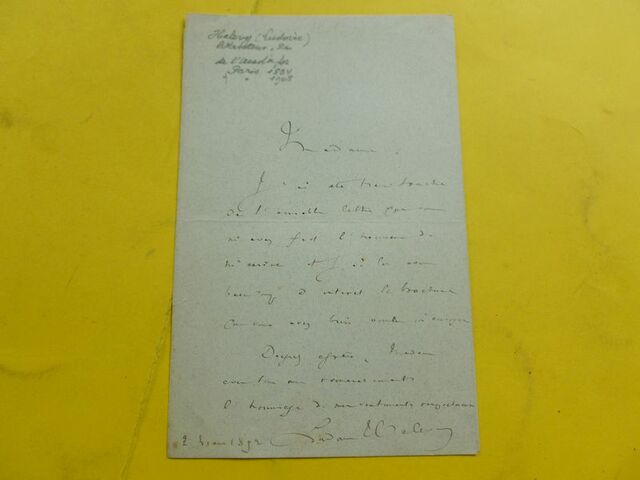 Halevy (Ludovic)
de l'Acad. fse
Paris 1834
" 1908
Madame,
J'ai été très touché
de l'aimable lettre que vous
m'avez fait l'honneur de
m'écrire et j'ai lu avec
beaucoup d'intérêt la brochure
que vous avez bien voulu m'envoyer
Daignez agréer, Madame
avec tous mes remerciements
l'hommage de mes sentiments respectueux
1892 Ludovic Halevy